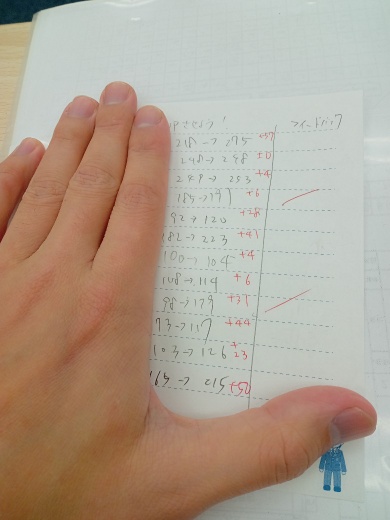 フィードバック
218→275 +57
248→248 ±0
249→253 +4
185→191 +6
92→120 +28
182→223 +41
100→104 +4
108→114 +6
98→129 +31
73→117 +44
103→126 +23
163→ +50